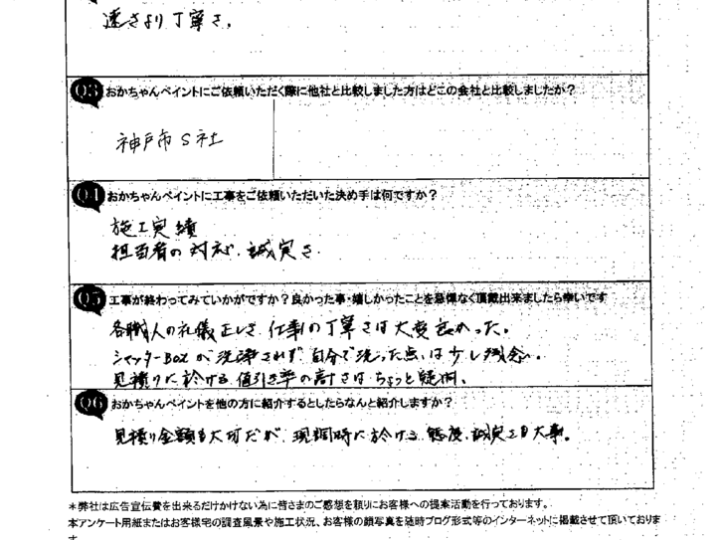 速さより丁寧さ。
Q3 おかちゃんペイントにご依頼いただく際に他社と比較しました方はどこの会社と比較しましたか？
神戸市 S社
Q4 おかちゃんペイントに工事をご依頼いただいた決め手は何ですか？
施工実績
担当者の対応、誠実さ
Q5 工事が終わってみていかがですか？良かった事・嬉しかったことを忌憚なく頂戴出来ましたら幸いです
各職人の礼儀正しさ、仕事の丁寧さは大変良かった。
シャッターBoxが洗浄されず、自分で洗った点は少し残念。
見積りに於ける値引き率の高さはちょっと疑問。
Q6 おかちゃんペイントを他の方に紹介するとしたらなんと紹介しますか？
見積り金額も大切だが、現調時に於ける態度、誠実さも大事。
＊弊社は広告宣伝費を出来るだけかけない為に皆さまのご感想を頼りにお客様への提案活動を行っております。
本アンケート用紙またはお客様宅の調査風景や施工状況、お客様の顔写真を随時ブログ形式等のインターネットに掲載させて頂いておりま
す